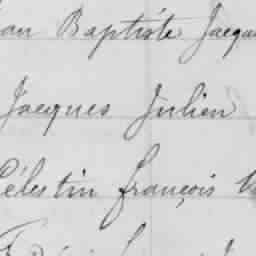 Baptiste Jacqu
Jacques Julien
Célestin françois